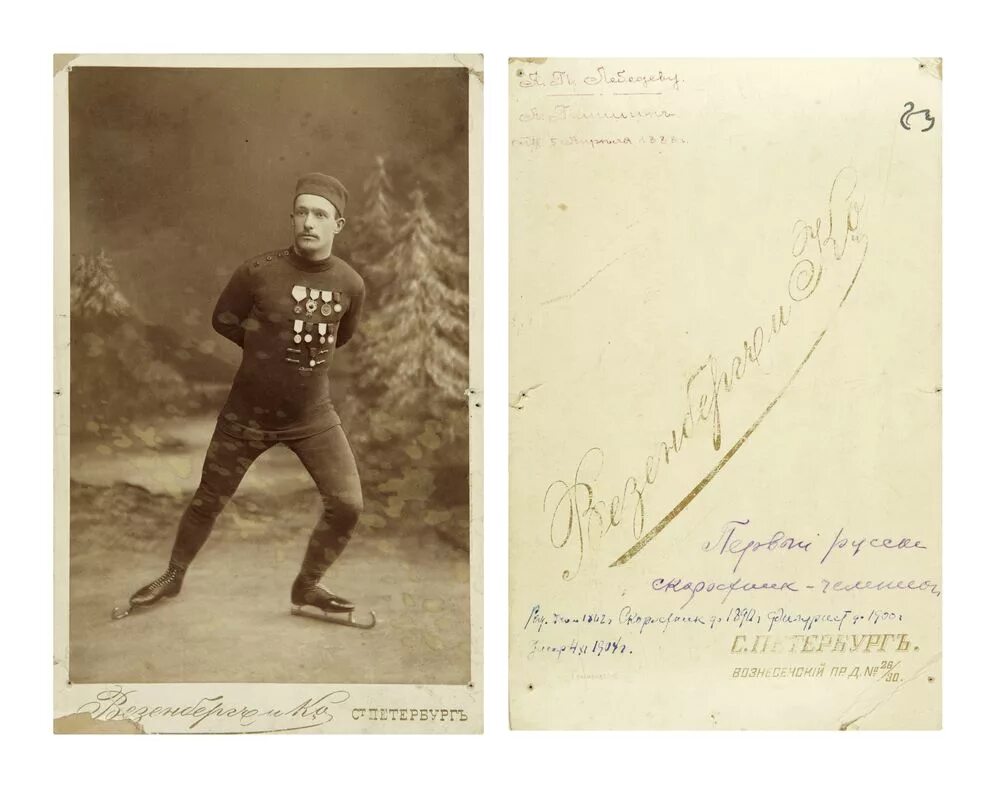 Везенбергъ и Ко. СТ ПЕТЕРБУРГЪ
А. П. Лебедеву.
А. Паншинъ
5 Апрѣля 1888 г.
23
Везенбергъ и Ко
Первый русск
скороходник - чемпион
Скороходник до 1890 г Фигурист до 1900 г
Умер 1904 г.
С. ПЕТЕРБУРГЪ.
ВОЗНЕСЕНСКІЙ ПР. Д. № 28/30.